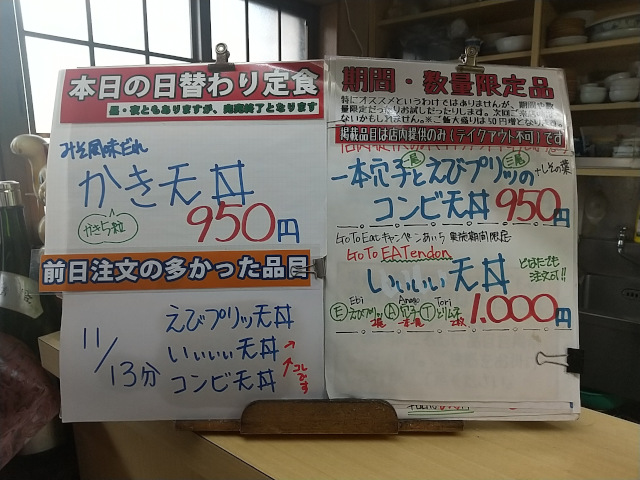 本日の日替わり定食
昼・夜ともありますが、完売終了となります
みそ風味だれ
かき天丼
かき5粒
950円
前日注文の多かった品目
11/13分
えびプリッツ天丼
いいいい天丼
コンビ天丼
コレです
期間・数量限定品
特にオススメというわけではありませんが、期間や数
量限定だったりお試しだったりします。次回ご来
ないかもしれません。※ご飯大盛りは50円増とな
掲載品目は店内提供のみ(テイクアウト不可)です
一本穴子とえびプリッツの
+しその葉
コンビ天丼 950円
GoToEatキャンペーンあいち 実施期間限定
GoTo EATendon
いいいい天丼
どなたでも
注文可!!
Ebi Anago Tori
Ⓔえびプリッツ Ⓐ穴子 Ⓣとりムネ
1.000円